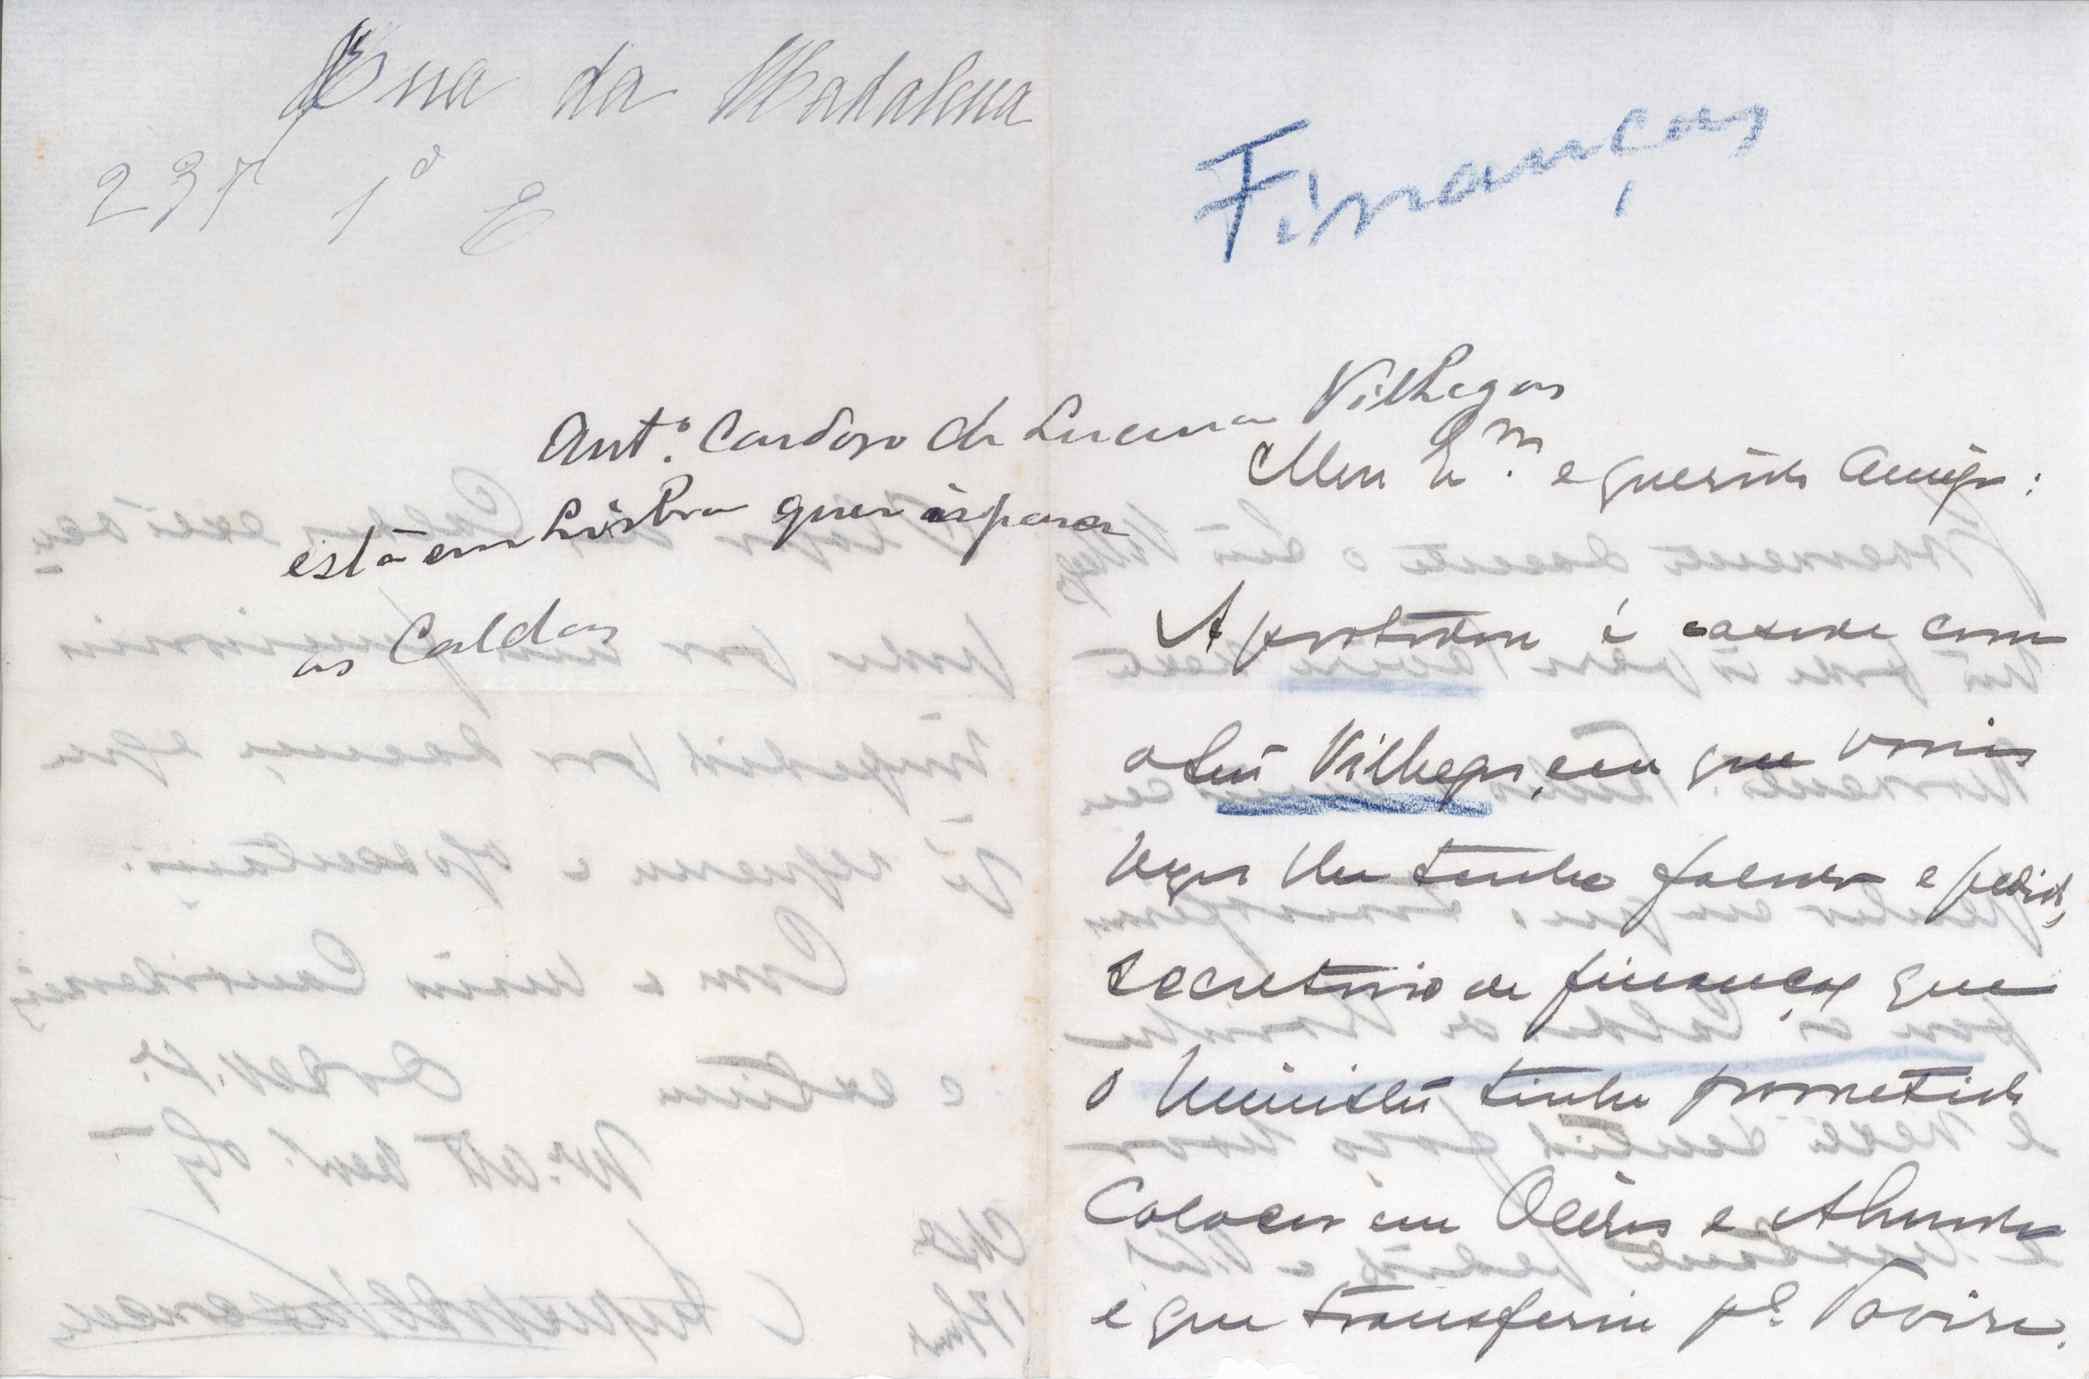 Rua da Madalena
237 1º E
Finanças
Antº. Cardoso de Lucena Vilhegas
está em Lisboa quer ir para
as Caldas
Meu Exm.º e querido Amigo:
A portadora é casada com
o Luiz Vilhegas, em que varias
vezes lhe tenho falado e pedido,
secretario de finanças que
o Ministro tinha prometido
Colocar em Oeiras e Almada
e que transferiu pª. Tavira.